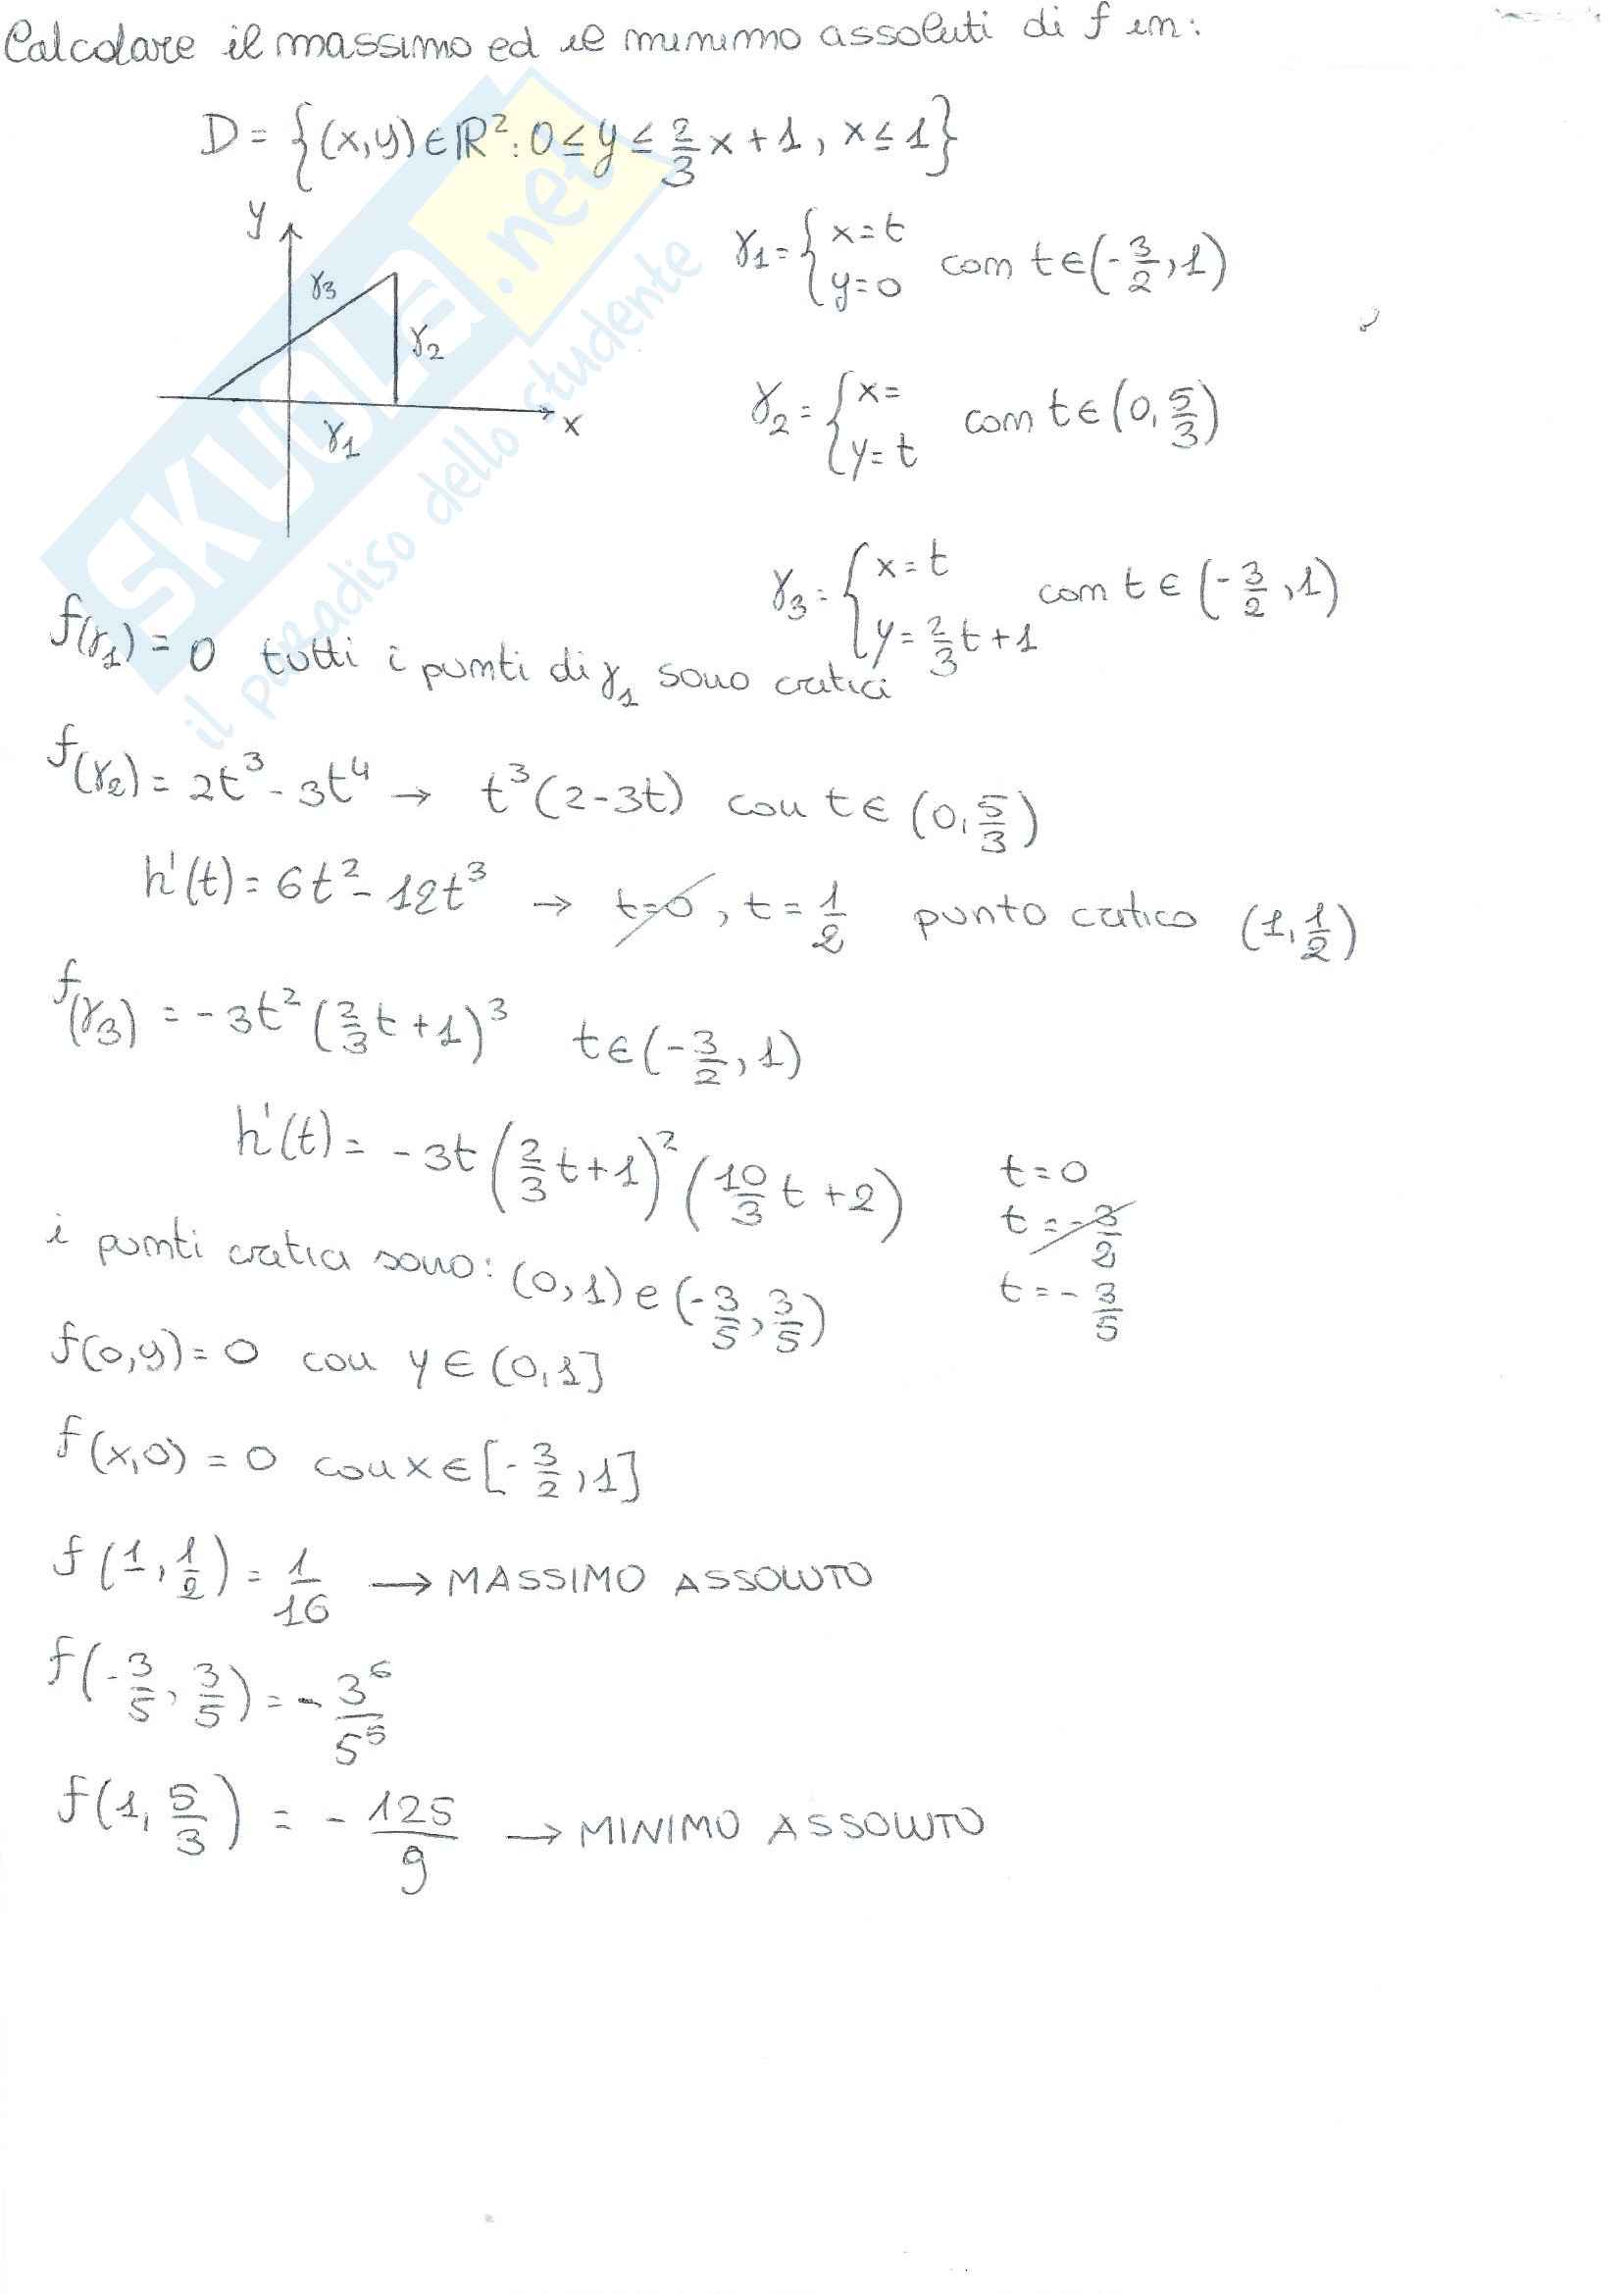 Calcolare il massimo ed il minimo assoluti di f in:
D = {(x,y) ∈ ℝ² : 0 ≤ y ≤ 2/3 x + 1, x ≤ 1}
y
γ3
γ2
x
γ1
γ1 = { x = t
y = 0 con t ∈ (-3/2, 1)
γ2 = { x =
y = t con t ∈ (0, 5/3)
γ3 = { x = t
y = 2/3 t + 1 con t ∈ (-3/2, 1)
f(γ1) = 0 tutti i punti di γ1 sono critici
f(γ2) = 2t³ - 3t⁴ → t³(2-3t) con t ∈ (0, 5/3)
h'(t) = 6t² - 12t³ → t=0, t = 1/2 punto critico (1, 1/2)
f(γ3) = -3t² (2/3 t + 1)³ t ∈ (-3/2, 1)
h'(t) = -3t (2/3 t + 1)² (10/3 t + 2) t = 0
t = -3/2
t = -3/5
i punti critici sono: (0,1) e (-3/5, 3/5)
f(0,y) = 0 con y ∈ (0,1]
f(x,0) = 0 con x ∈ [-3/2, 1]
f(1, 1/2) = 1/16 → MASSIMO ASSOLUTO
f(-3/5, 3/5) = - 3⁶/5⁵
f(1, 5/3) = - 125/9 → MINIMO ASSOLUTO
SKUOLA.net
il paradiso dello studente